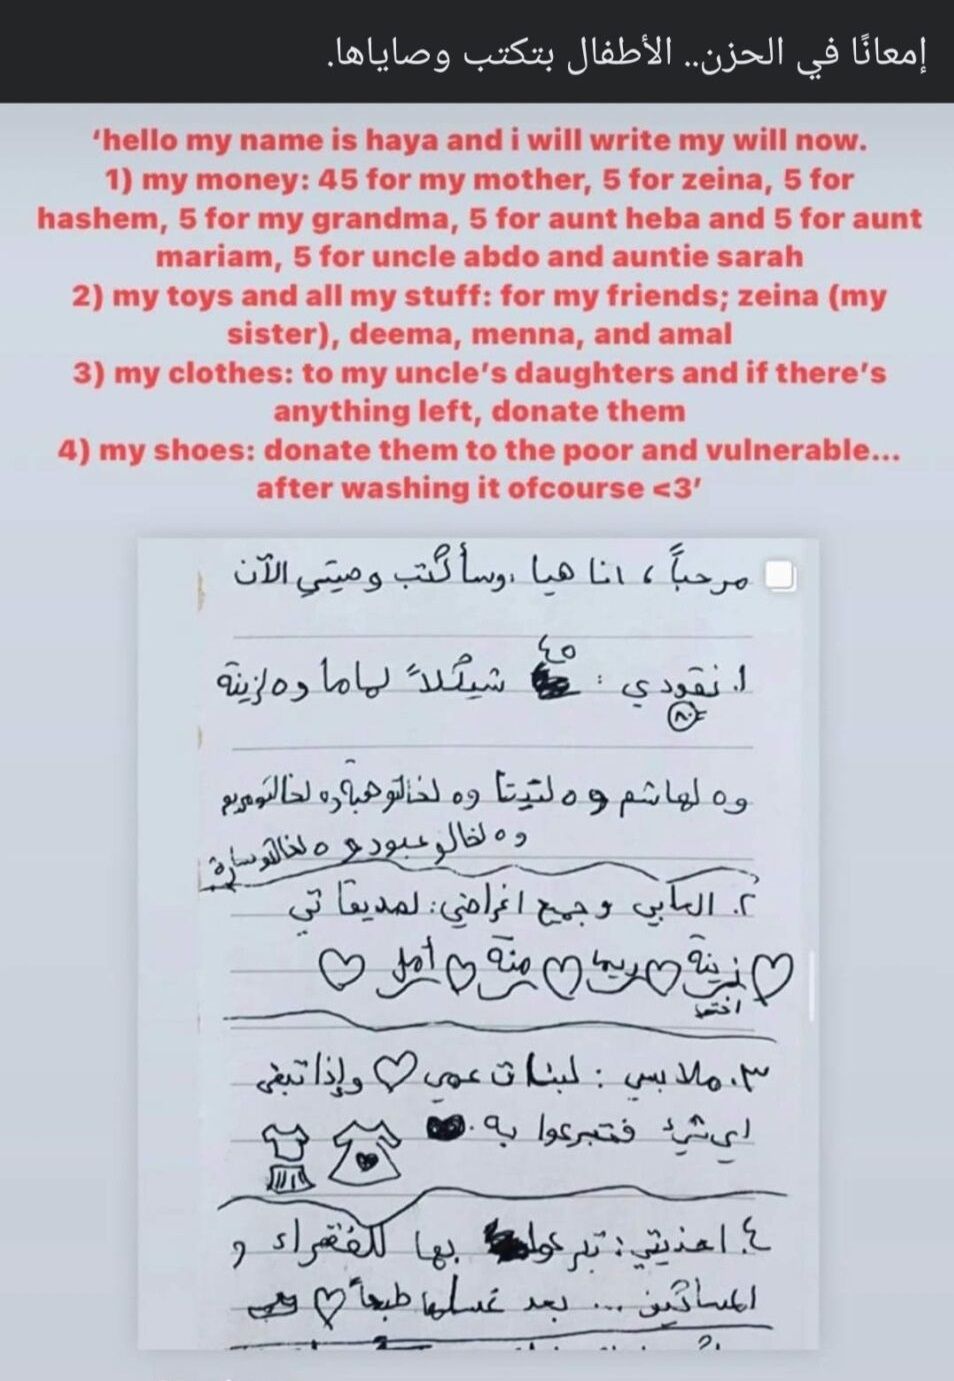 إمعانًا في الحزن.. الأطفال بتكتب وصاياها.
‘hello my name is haya and i will write my will now.
1) my money: 45 for my mother, 5 for zeina, 5 for
hashem, 5 for my grandma, 5 for aunt heba and 5 for aunt
mariam, 5 for uncle abdo and auntie sarah
2) my toys and all my stuff: for my friends; zeina (my
sister), deema, menna, and amal
3) my clothes: to my uncle’s daughters and if there’s
anything left, donate them
4) my shoes: donate them to the poor and vulnerable...
after washing it ofcourse <3’
مرحباً، انا هيا، وسأكتب وصيتي الآن
٤٥
١. نقودي : شيكلاً لماما و٥ لزينة
٨٠
و٥ لهاشم و٥ لتيتا و٥ لخالتو هبة و٥ لخالتو مريم
و٥ لخالو عبود و ٥ لخالتو سارة
٢. العابي وجميع اغراضي: لصديقاتي
زينة ريما منة أمل
اختي
٣. ملابسي : لبنات عمي وإذا تبقى
اي شيء فتبرعوا به.
٤. احذيتي: تبرعوا بها للفقراء و
المساكين ... بعد غسلها طبعاً